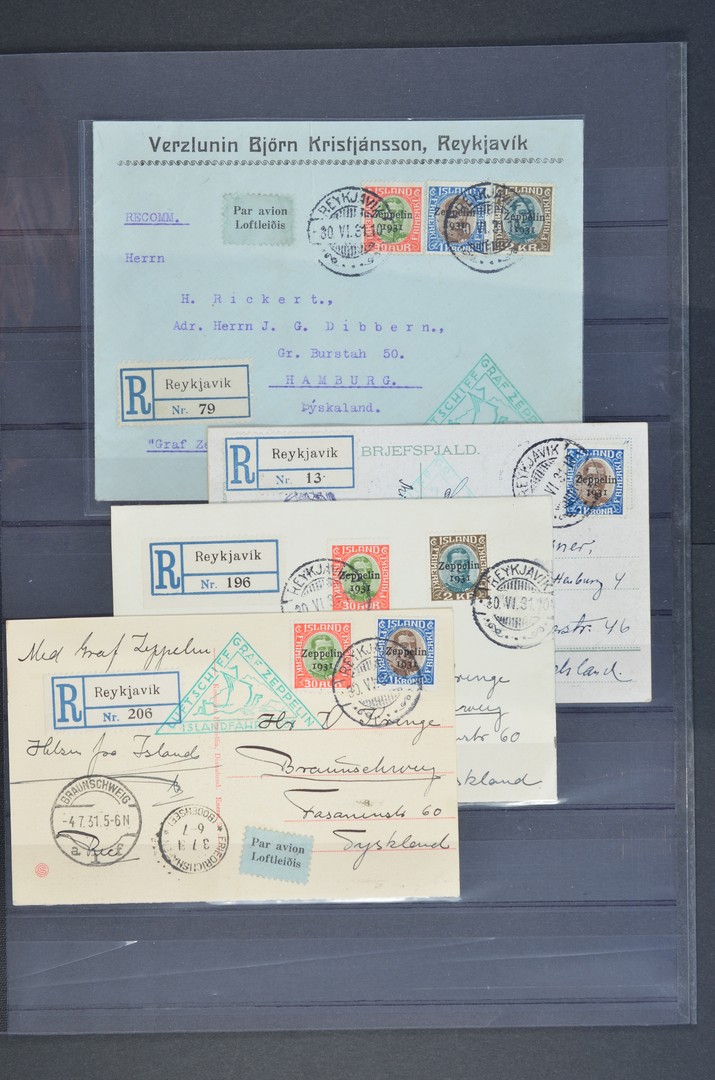 Verzlunin Björn Kristjánsson, Reykjavík
RECOMM.
Par avion
Loftleiðis
REYKJAVIK
30.VI.31.10
ÍSLAND
Zeppelin
1931
30 AUR
ÍSLAND
Zeppelin
1931
1 KRÓNA
ÍSLAND
Zeppelin
1931
2 KR.
FRIMERKI
REYKJAVIK
Herrn
H. Rickert.,
Adr. Herrn J. G. Dibbern.,
Gr. Burstah 50.
HAMBURG.
Þýskaland.
R
Reykjavik
Nr. 79
"Graf Ze
LUFTSCHIFF GRAF ZEPPELIN
R
Reykjavík
Nr. 13
BRJEFSPJALD.
REYKJAVIK
VI.31
Zeppelin
1931
1 KRÓNA
FRIMERKI
Harburg 4
46
R
Reykjavik
Nr. 196
REYKJAVIK
30.VI.3
ÍSLAND
Zeppelin
1931
30 AUR
ÍSLAND
Zeppelin
1931
2 KR.
REYKJAVIK
30.VI.31.10
60
yskland
Med Graf Zeppelin
R
Reykjavik
Nr. 206
LUFTSCHIFF GRAF ZEPPELIN
ISLANDFAHRT
ÍSLAND
Zeppelin
1931
30 AUR
ÍSLAND
Zeppelin
1931
1 KRÓNA
REYKJAVIK
30.VI.
Hr. D. Kringe
Braunschweig
Fasanenstr 60
Tyskland
Hilsen fra Island
BRAUNSCHWEIG
-4.7.31.5-6N
a f
FRIEDRICHSHAFEN
(BODENSEE)
3.7.31
6-7
Par avion
Loftleiðis